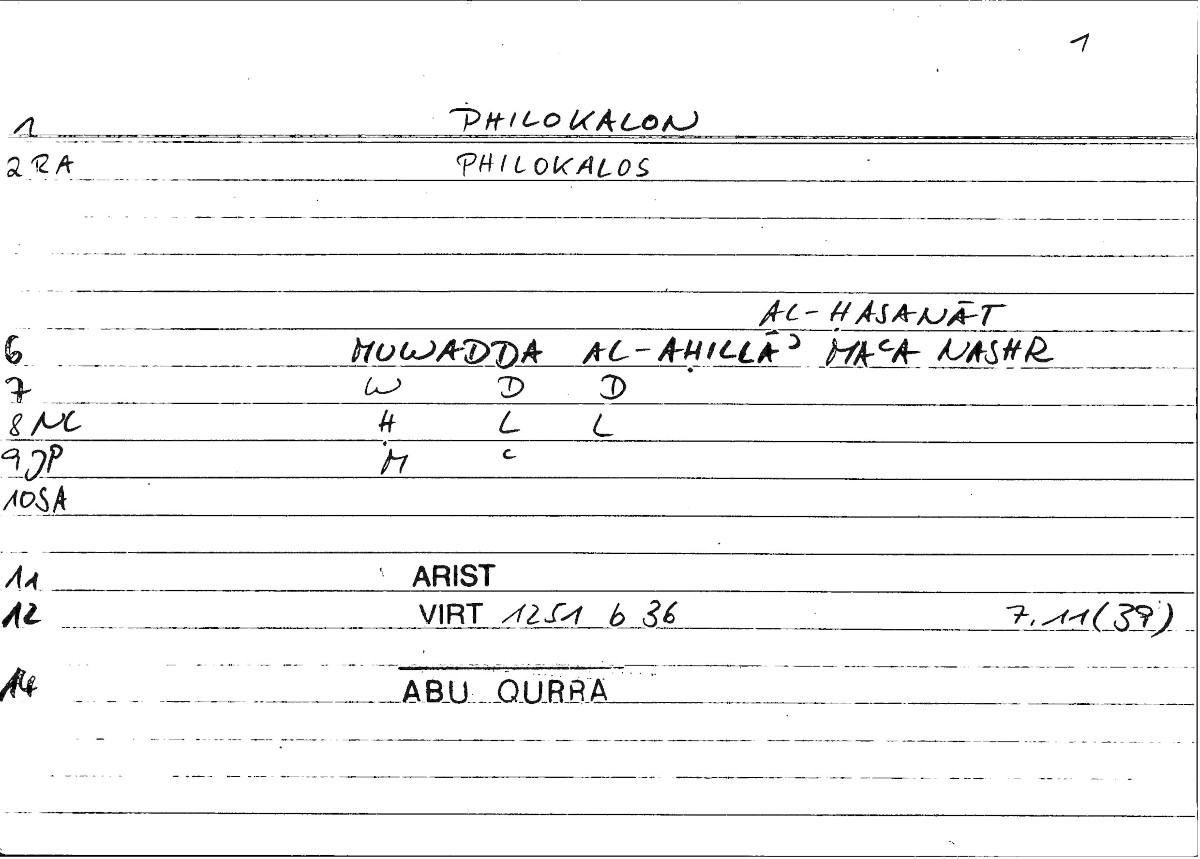 1
1 PHILOKALON
2 RA PHILOKALOS
AL-ḤASANĀT
6 MUWADDA AL-AḤILLĀʾ MAʿA NASHR
7 W D D
8 NC Ḥ L L
9 JP M ʿ
10 SA
11 ARIST
12 VIRT 1251 b 36 7.11(39)
14 ABU QURRA